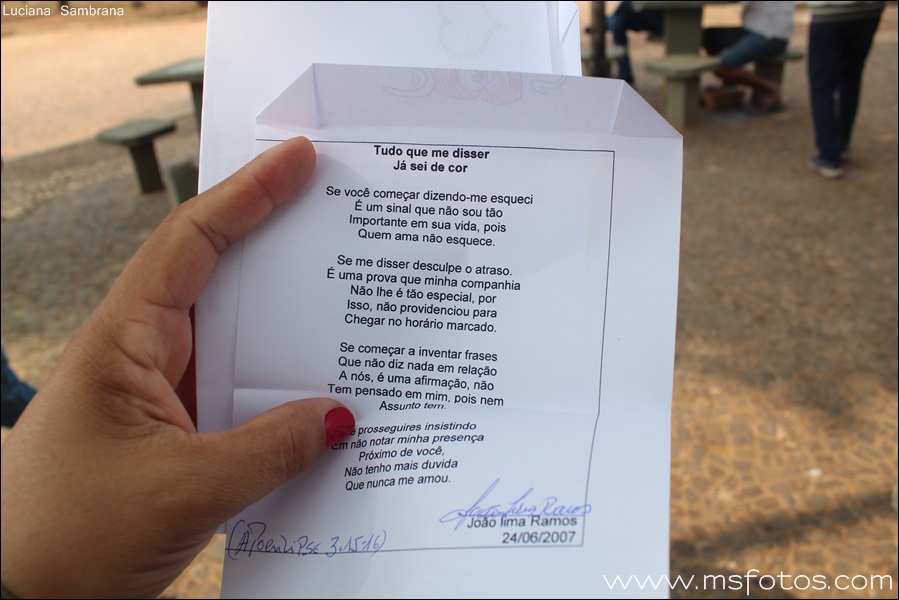 Luciana Sambrana
Tudo que me disser
Já sei de cor
Se você começar dizendo-me esqueci
É um sinal que não sou tão
Importante em sua vida, pois
Quem ama não esquece.
Se me disser desculpe o atraso.
É uma prova que minha companhia
Não lhe é tão especial, por
Isso, não providenciou para
Chegar no horário marcado.
Se começar a inventar frases
Que não diz nada em relação
A nós, é uma afirmação, não
Tem pensado em mim, pois nem
Assunto tem.
prosseguires insistindo
Em não notar minha presença
Próximo de você,
Não tenho mais duvida
Que nunca me amou.
João lima Ramos
24/06/2007
(APocalipse 3,15-16)
www.msfotos.com